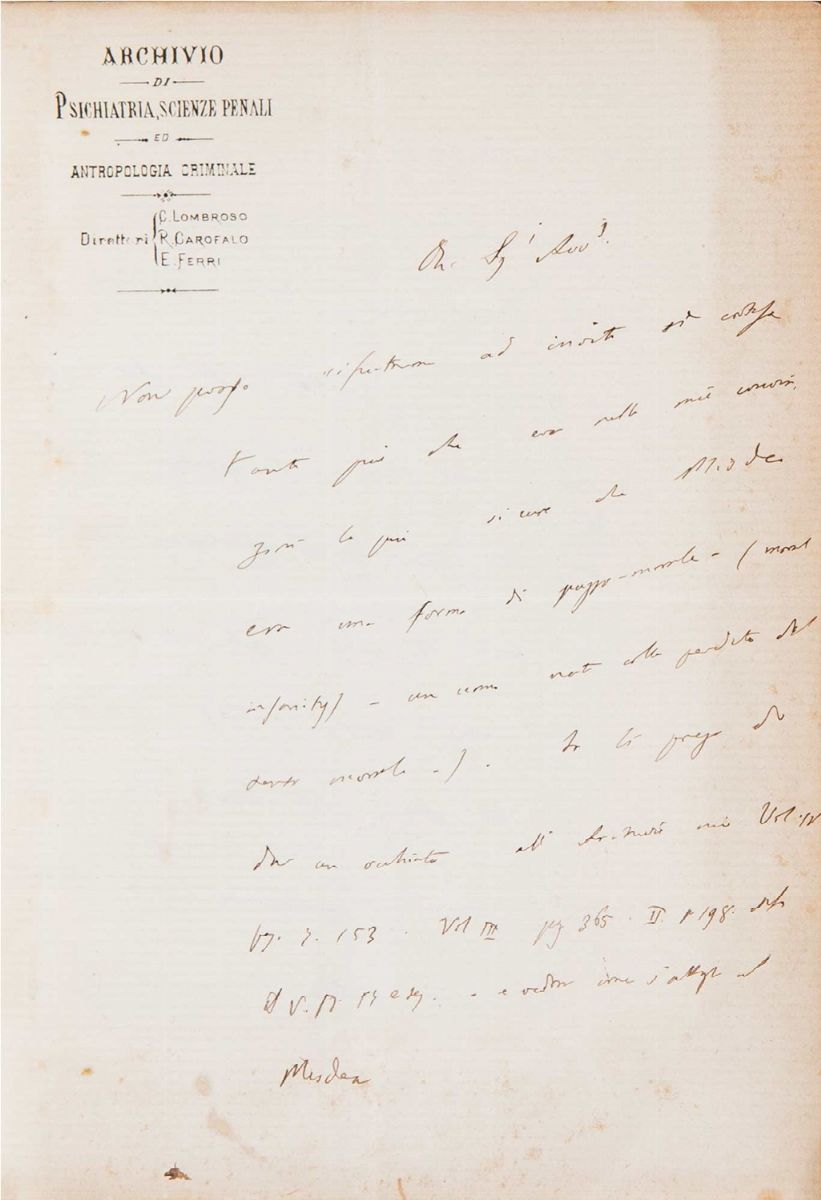 ARCHIVIO
DI
PSICHIATRIA, SCIENZE PENALI
ED
ANTROPOLOGIA CRIMINALE
Direttori
C. LOMBROSO
R. GAROFALO
E. FERRI
Avv.
Non posso ad invito
tanto più che era nelle mie
le più sicure che Misdea
era una forma di pazzo-morale - (moral
insanity) - un uomo nato colla perdita del
senso morale -). Io La prego di
dar un occhiata all' Archivio mio Vol. IV
pg. 153. Vol III pg 365. II p 198.
V. e seg. - e vedrà come al
Misdea